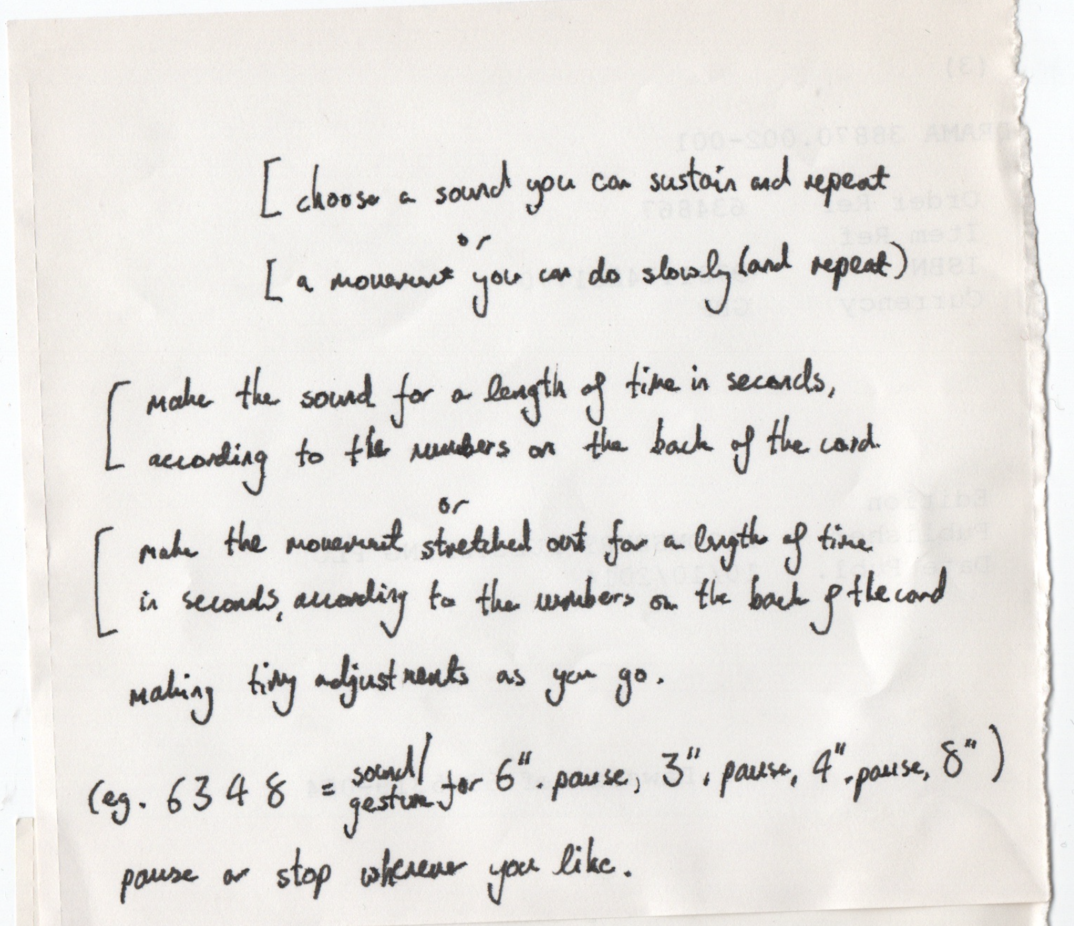 [ choose a sound you can sustain and repeat
or
[ a movement you can do slowly (and repeat)
[ make the sound for a length of time in seconds,
according to the numbers on the back of the card.
or
[ make the movement stretched out for a length of time
in seconds, according to the numbers on the back of the card
making tiny adjustments as you go.
(eg. 6 3 4 8 = sound/gesture for 6". pause, 3". pause, 4". pause, 8")
pause or stop wherever you like.